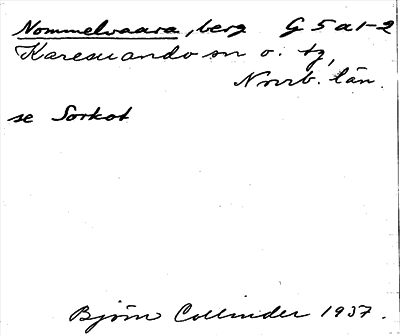 Nommelvaara, berg G 5 a 1-2
Karesuando sn o. tg,
Norrb. län.
se Sorkot
Björn Collinder 1937.